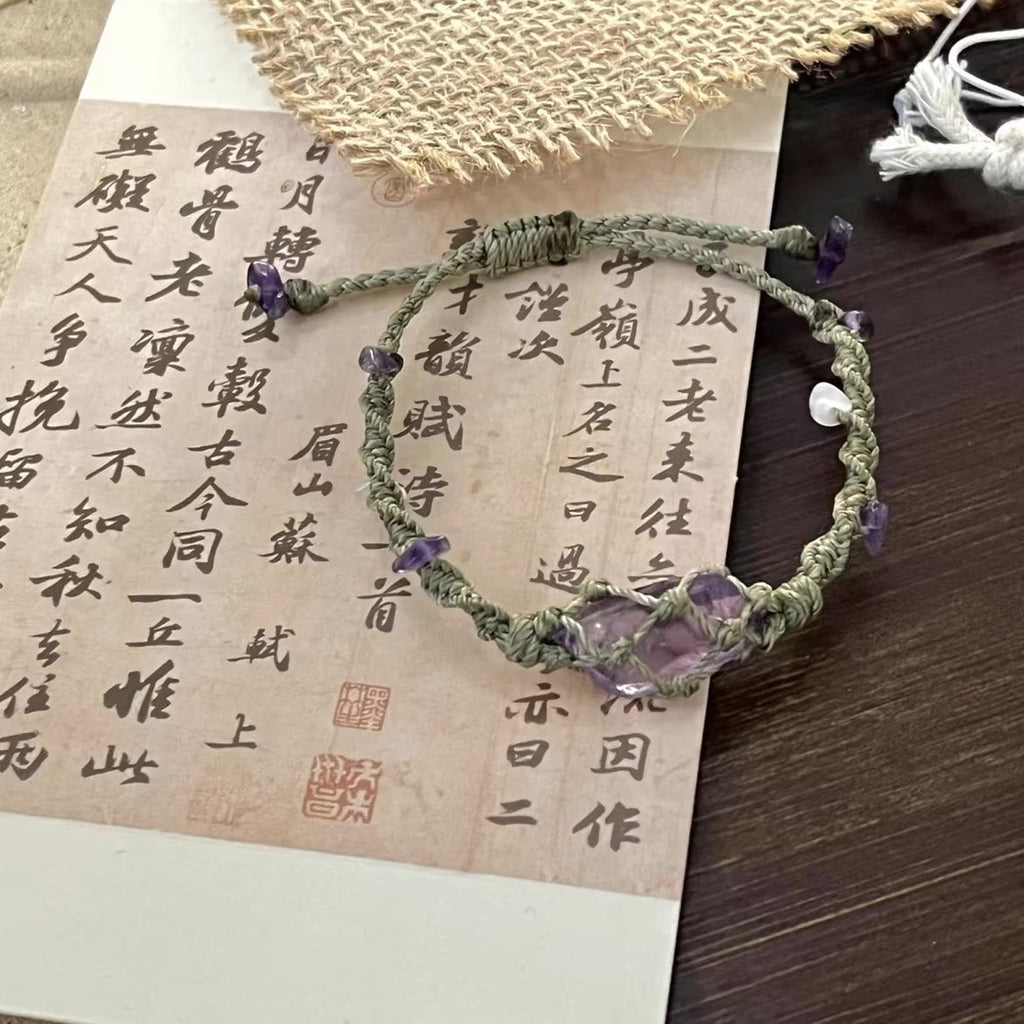 成二老来往
因作
亭嶺上名之曰過
亦曰二
謹次
才韻賦詩一首
眉山蘇軾上
日月轉雙轂古今同一丘惟此
鶴骨老凜然不知秋去住兩
無礙天人爭挽留